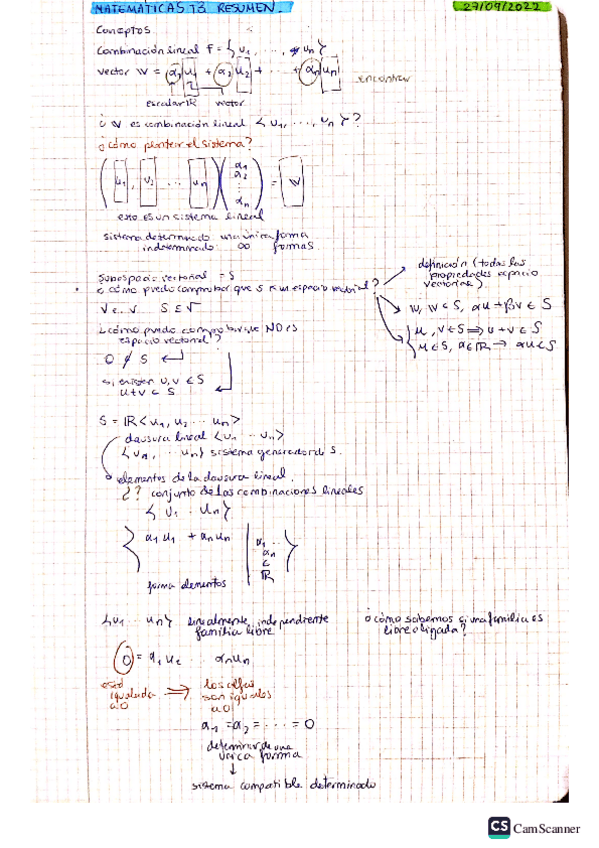 MATEMÁTICAS T3 RESUMEN.
27/09/2022
Conceptos
Combinación lineal F = { u1, ..., un }
vector W = α1 u1 + α2 u2 + ... + αn un
encontrar
escalar ℝ vector
¿ W es combinación lineal { u1, ..., un } ?
¿cómo plantear el sistema?
( u1, u2 ... un ) ( α1 α2 ⋮ αn ) = W
esto es un sistema lineal
sistema determinado una única forma
indeterminado ∞ formas
definición (todas las
propiedades espacio
vectorial)
Subespacio vectorial = S
¿ cómo puedo comprobar que S es un espacio vectorial ?
V e. v S ⊆ V
u, v ∈ S, αu + βv ∈ S
u, v ∈ S ⟹ u + v ∈ S
u ∈ S, α ∈ ℝ → αu ∈ S
¿cómo puedo comprobar que NO es
espacio vectorial?
0 ∉ S
si existen u, v ∈ S
S = ℝ < u1, u2 ... un >
clausura lineal < u1 ... un >
{ u1, ... un } sistema generador de S.
elementos de la clausura lineal.
¿? conjunto de las combinaciones lineales
{ u1 . un }
{ α1 u1 .. + αn un | α1 .. αn ∈ ℝ }
forma elementos
{ u1 .. un } linealmente independiente
familia libre
¿cómo sabemos si una familia es
libre o ligada?
0 = α1 u1 ... αn un
está
igualada
a 0
⟹
los alfas
son iguales
a 0
α1 = α2 = ... = 0
de una
única forma
↓
sistema compatible determinado
CS CamScanner